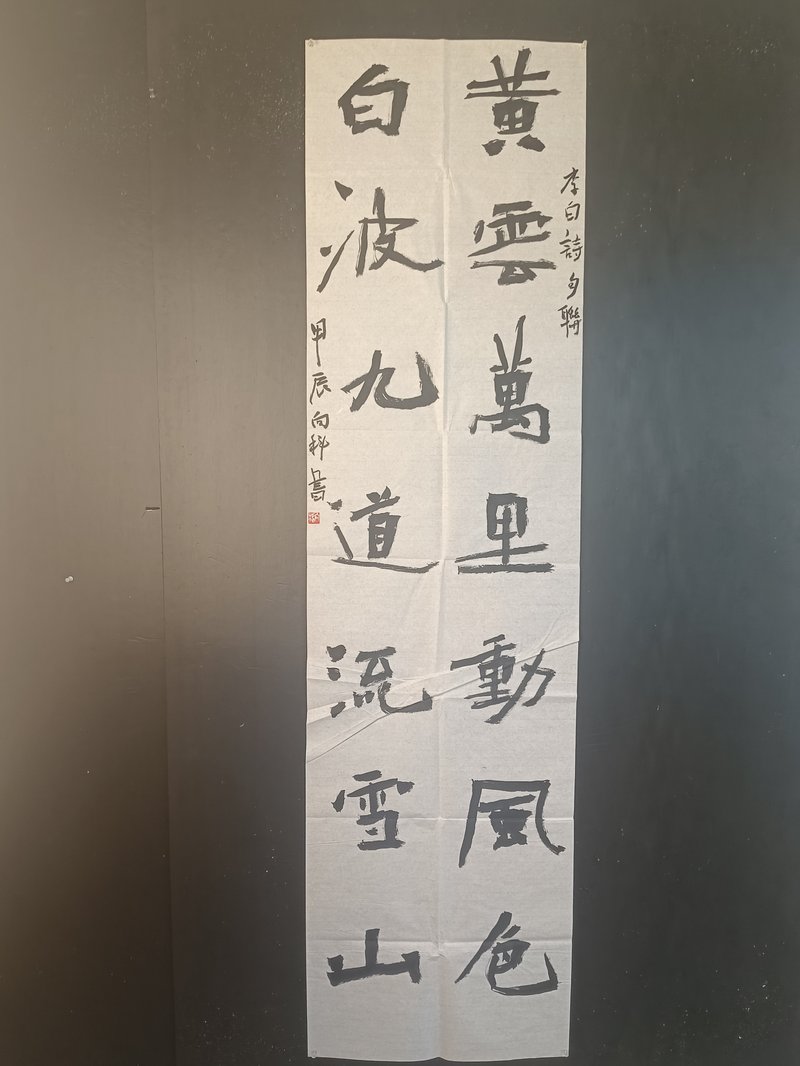 李白詩句聯
黃雲萬里動風色
白波九道流雪山
甲辰向科書